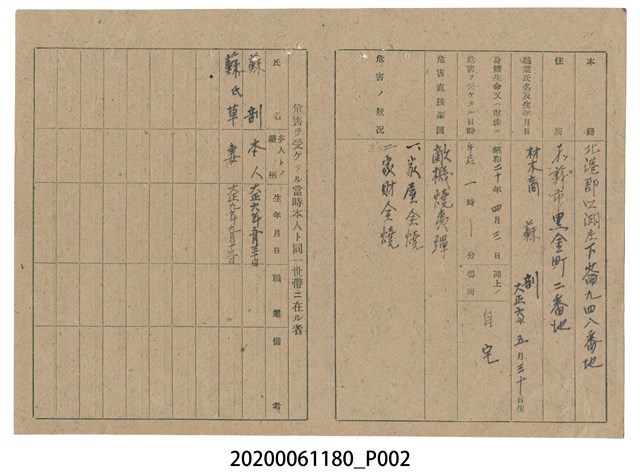 本籍 北港郡口湖庄下崙九四八番地
住所 嘉義市黑金町二番地
職業氏名及生年月日 材木商 蘇 剖 大正六年五月三十日生
身體生命又ハ財產ニ危害ヲ受ケタル日時 昭和二十年四月三日 午后一時 分 同上ノ場所 自宅
危害直接原因 敵機燒夷彈
危害ノ狀況 一、家屋全燒
二、家財全燒
危害ヲ受ケタル當時本人ト同一世帶ニ在ル者
氏名 本人トノ續柄 生年月日 職業 備考
蘇 剖 本人 大正六年五月三十日
蘇氏草 妻 大正九年九月十三日
20200061180_P002